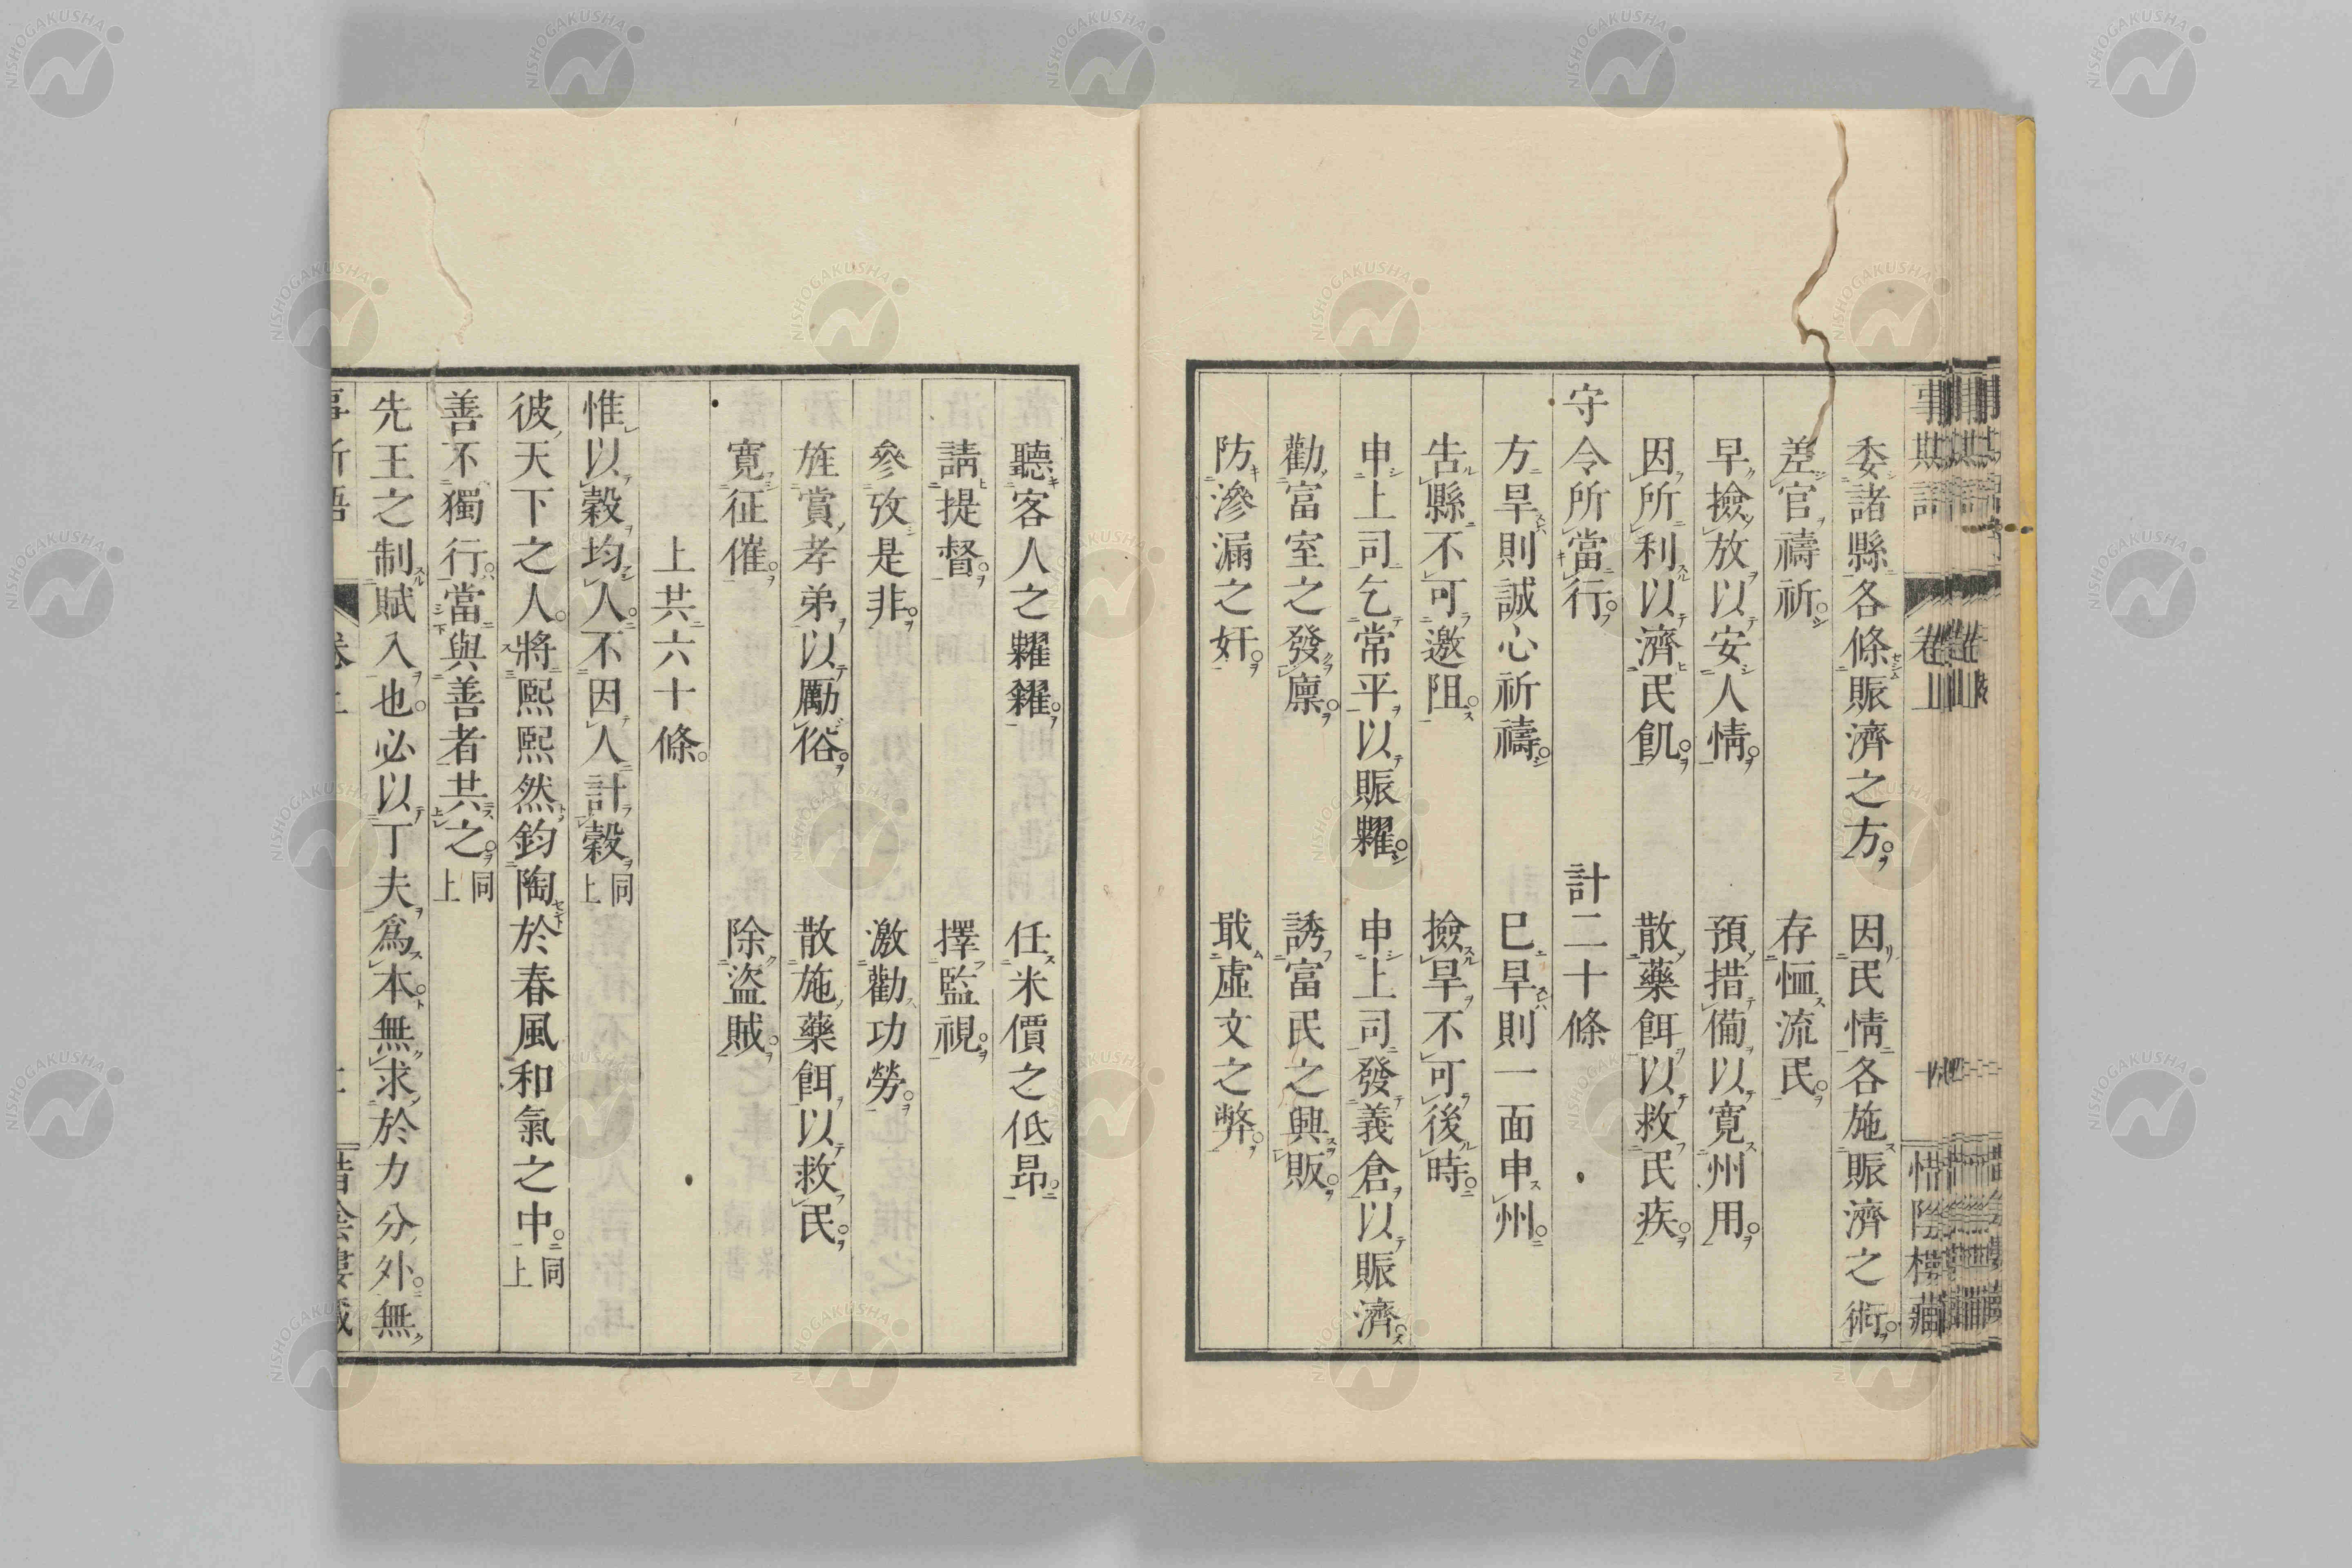 委諸縣各條賑濟之方。 因民情各施賑濟之術。
差官禱祈。 存恤流民。
早撿放以安人情。 預措備以寛州用。
因所利以濟民飢。 散藥餌以救民疾。
守令所當行。 計二十條
方旱則誠心祈禱。 巳旱則一面申州。
告縣不可邀阻。 撿旱不可後時。
申上司乞常平以賑糶。 申上司發義倉以賑濟。
勸富室之發廩。 誘富民之興販。
防滲漏之奸。 戢虛文之弊。
聽客人之糶糴。 任米價之低昂。
請提督。 擇監視。
參攷是非。 激勸功勞。
旌賞孝弟以勵俗。 散施藥餌以救民。
寛征催。 除盜賊。
上共六十條。
惟以穀均人。不因人計穀 同上
彼天下之人。將熙熙然鈞陶於春風和氣之中。 同上
善不獨行。當與善者共之。 同上
先王之制賦入也。必以丁夫爲本。無求於力分外。無
NISHOGAKUSHA